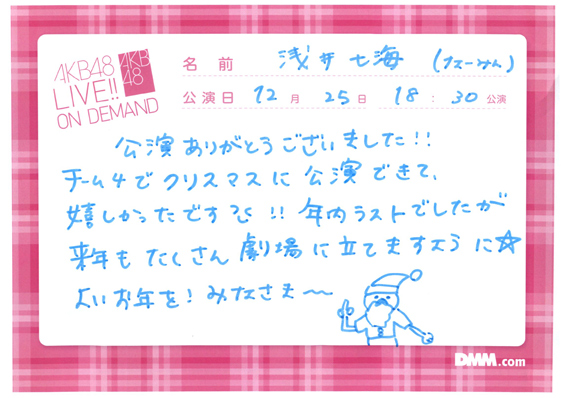 AKB48
LIVE!!
ON DEMAND
AKB
48
名前 浅井七海 (なーみん)
公演日 12月25日 18:30公演
公演ありがとうございました!!
チーム4でクリスマスに公演できて、
嬉しかったです!! 年内ラストでしたが
来年もたくさん劇場に立てますように☆
よいお年を! みなさま〜
DMM.com